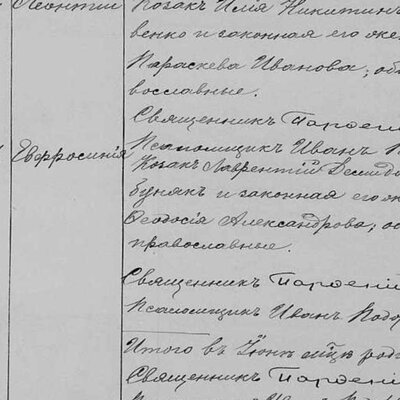 Леонтій
Козакъ Илія Никитинъ
венко и законная его же
Параскева Иванова, об
вославные.
Священникъ Парѳені
Псаломщикъ Иванъ
Евфросинія
Козакъ Лаврентій Демидо
бунякъ и законная его ж
Ѳеодосія Александрова; о
православные.
Священникъ Парѳеній
Псаломщикъ Иванъ Подо
Итого въ Іюнѣ мѣсяцѣ род
Священникъ Парѳені